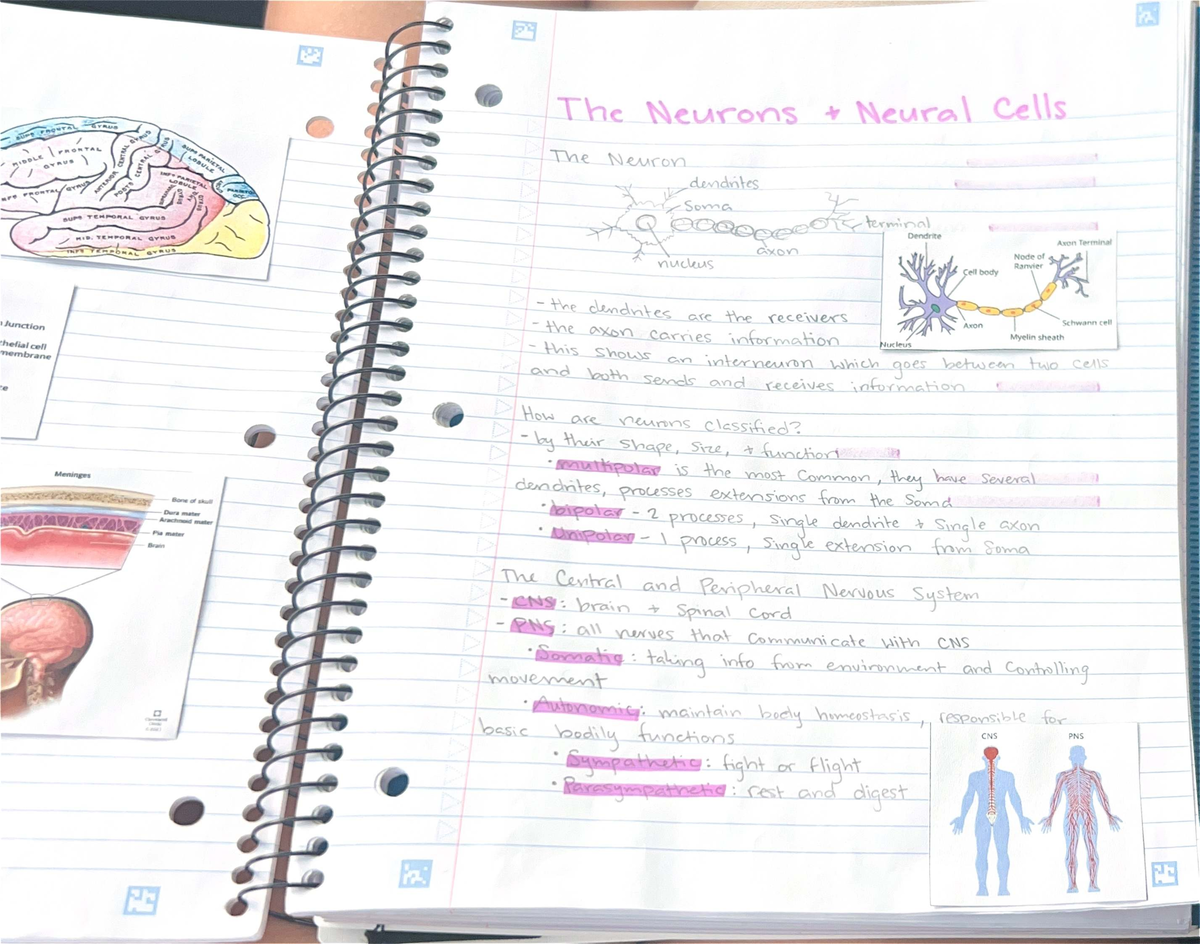 SUPR FRONTAL GYRUS
MIDDLE FRONTAL GYRUS
FRONTAL GYRUS
ANTERIOR CENTRAL GYRUS
POSTR CENTRAL GYRUS
SUPR PARIETAL LOBULE
INFR PARIETAL LOBULE
SUPR TEMPORAL GYRUS
MID. TEMPORAL GYRUS
INFR TEMPORAL GYRUS
Junction
membrane
Meninges
Bone of skull
Dura mater
Arachnoid mater
Pia mater
Brain
The Neurons + Neural Cells
The Neuron
dendrites
Soma
terminal
axon
nucleus
Dendrite
Axon Terminal
Node of
Ranvier
Cell body
Axon
Schwann cell
Myelin sheath
Nucleus
- the dendrites are the receivers
- the axon carries information
- this shows an interneuron which goes between two cells
and both sends and receives information
How are neurons classified?
- by their shape, size, + function
• multipolar is the most common, they have several
dendrites, processes extensions from the Soma
• bipolar - 2 processes, single dendrite + single axon
• Unipolar - 1 process, single extension from Soma
The Central and Peripheral Nervous System
- CNS: brain + Spinal Cord
- PNS: all nerves that communicate with CNS
• Somatic: taking info from environment and controlling
movement
• Autonomic: maintain body homeostasis, responsible for
basic bodily functions
• Sympathetic: fight or flight
• Parasympathetic: rest and digest
CNS
PNS